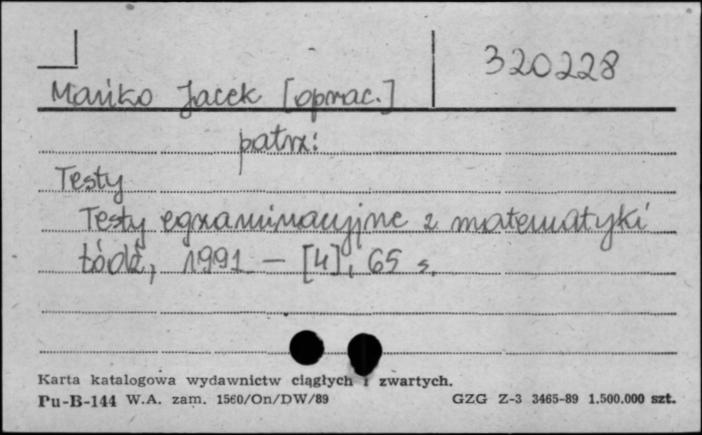 320228
Mańko Jacek [oprac.]
patrz:
Testy
Testy egzaminacyjne z matematyki
Łódź, 1991 – [4], 65 s.
Karta katalogowa wydawnictw ciągłych i zwartych.
Pu-B-144 W.A. zam. 1560/On/DW/89 GZG Z-3 3465-89 1.500.000 szt.